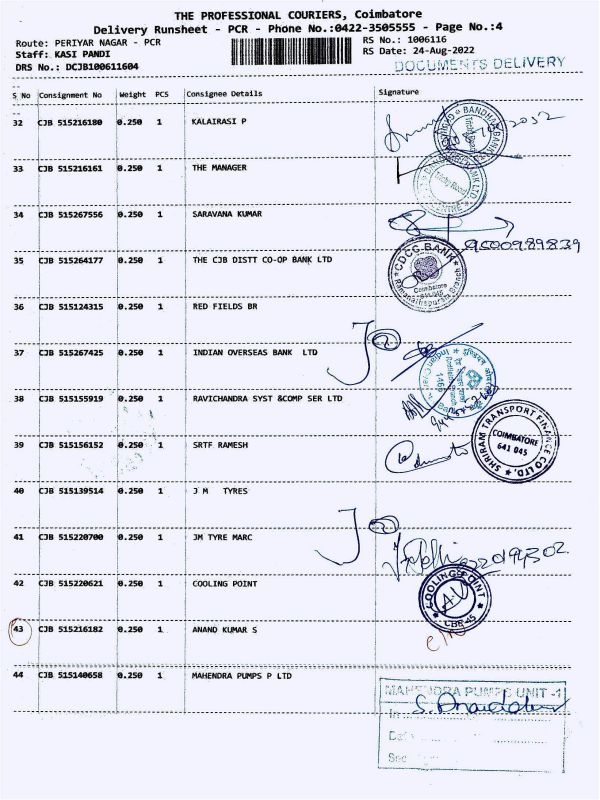 THE PROFESSIONAL COURIERS, Coimbatore
Delivery Runsheet - PCR - Phone No.:0422-3505555 - Page No.:4
Route: PERIYAR NAGAR - PCR
RS No.: 1006116
Staff: KASI PANDI
RS Date: 24-Aug-2022
DRS No.: DCJB100611604
DOCUMENTS DELIVERY
S No Consignment No Weight PCS Consignee Details Signature
32 CJB 515216180 0.250 1 KALAIRASI P
BANDHAN BANK
33 CJB 515216161 0.250 1 THE MANAGER
Trichy Road
34 CJB 515267556 0.250 1 SARAVANA KUMAR
9500989839
35 CJB 515264177 0.250 1 THE CJB DISTT CO-OP BANK LTD
CDCC BANK
Coimbatore
641 045
Ramanathapuram Branch
36 CJB 515124315 0.250 1 RED FIELDS BR
37 CJB 515267425 0.250 1 INDIAN OVERSEAS BANK LTD
1466
38 CJB 515155919 0.250 1 RAVICHANDRA SYST &COMP SER LTD
SHRIRAM TRANSPORT FINANCE CO LTD.
COIMBATORE
641 045
39 CJB 515156152 0.250 1 SRTF RAMESH
40 CJB 515139514 0.250 1 J M TYRES
41 CJB 515220700 0.250 1 JM TYRE MARC
42 CJB 515220621 0.250 1 COOLING POINT
COOLING POINT
CBE-45
43 CJB 515216182 0.250 1 ANAND KUMAR S
44 CJB 515140658 0.250 1 MAHENDRA PUMPS P LTD
MAHENDRA PUMPS UNIT -1